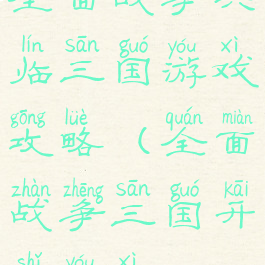 全面战争
lín sān guó yóu xì
临三国游戏
gōng lüè quán miàn
攻略（全面
zhàn zhēng sān guó kāi
战争三国开
shǐ yóu xì